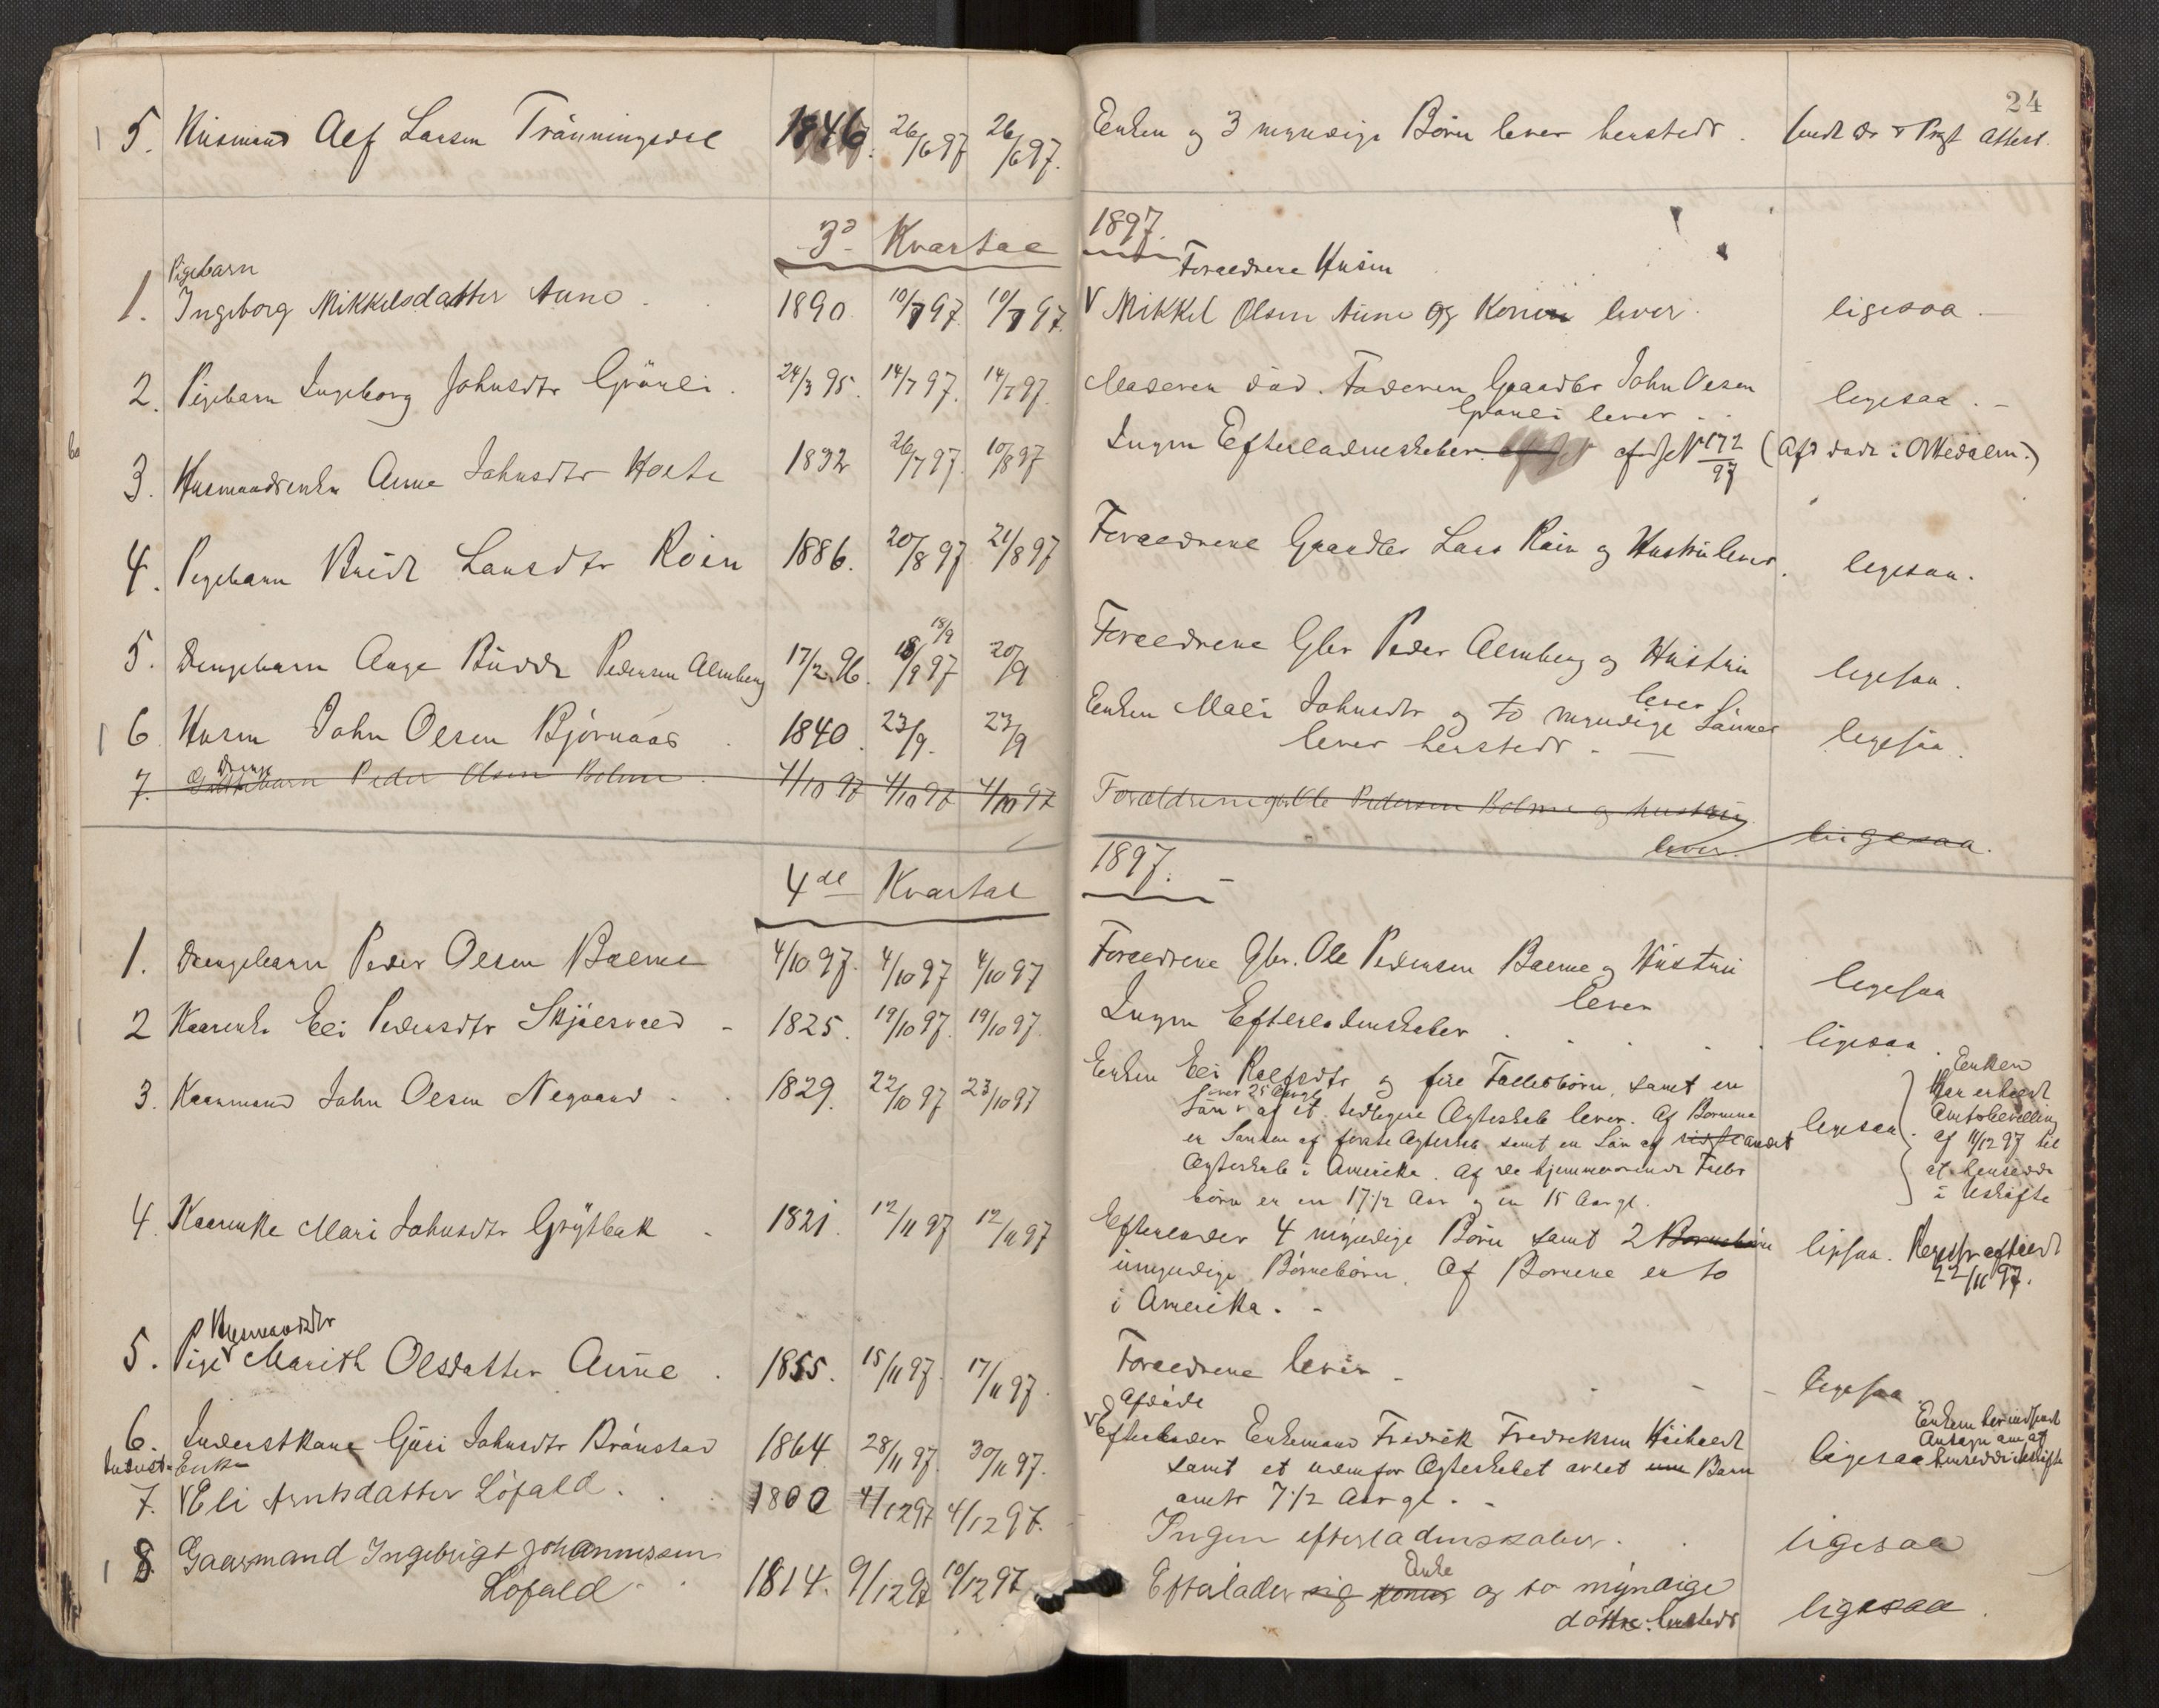 24
5. Husmand Alf Larsen Trönningsdal 1846. 26/6 97 26/6 97. Enken og 3 myndige Börn lever hersteds. Attest.
3d Kvartal 1897.
Pigebarn Forældrene Husm
1. Ingeborg Mikkelsdatter Aune 1890 10/7 97. 10/7 97. Mikkel Olsen Aune og Konen lever. ligesaa.
2. Pigebarn Ingeborg Johnsdtr Grönli. 24/3 95. 14/7 97. 14/7 97. Moderen död. Faderen Gaardbr John Olsen ligesaa. -
Grönli lever.
3. Husmandsenke Anne Johnsdtr Holte 1832 26/7 97. 10/8 97 Ingen Efterladenskaber. af 172/97 (Afd döde i Meldalen.)
4. Pigebarn Larsdtr Röin 1886. 20/8 97 21/8 97 Forældrene Gaardbr Lars Röin og Hustru lever. ligesaa.
18/9
5. Drengebarn Aage Pedersen Almberg 17/2 96. 18/9 97 20/9 Forældrene Gbr Peder Almberg og Hustru ligesaa.
lever
6 Husm John Olsen Björnaas 1840. 23/9. 23/9 Enken Mali Johnsdtr og to myndige Sönner ligesaa.
lever hersteds. -
Drenge
7. barn Peder Olsen Bolme 4/10 97 4/10 97 4/10 97 Forældrene gbr Ole Pedersen Bolme og hustru
lever. ligesaa.
4de Kvartal 1897. -
1. Drengebarn Peder Olsen Bolme 4/10 97. 4/10 97 4/10 97 Forældrene Gbr. Ole Pedersen Bolme og Hustru ligesaa
lever
2 Kaarenke Eli Pedersdtr Skjölsvold - 1825. 19/10 97. 19/10 97. Ingen Efterladenskaber. ligesaa.
3. Kaarmand John Olsen Negaard 1829. 22/10 97 23/10 97 Enken Eli Rolfsdtr og fire Fællesbörn, samt en
over 25 Aar
Sön af et tidligere Ægteskab lever. Af Börnene ligesaa.
er Sönnen af förste Ægteskab samt en Sön af sidste andet
Ægteskab i Amerika. Af de hjemmeværende Fælles
börn er en 17 1/2 Aar og en 15 Aar gl.
Enken
har erholdt
Amtsbevilling
af 11/12 97 til
at hensidde
i uskifte
4. Kaarenke Mari Johnsdtr Grytbak 1821. 12/11 97 12/11 97 Efterlader 4 myndige Börn samt 2 Börnebörn ligesaa.
22/11 97.
umyndige Börnebörn. Af Börnene er to
i Amerika. -
5. Pige Marith Olsdatter Aune. 1855. 15/11 97. 17/11 97. Forældrene lever. ligesaa
Afdöde
6. Inderstkone Guri Johnsdtr Brönstad 1864 28/11 97. 30/11 97. Efterlader Enkemand Fredrik Fredriksen ligesaa
samt et udenfor Ægteskabet avlet Barn
7 1/2 Aar gl. -
Inderst. Enke
7. Eli Arntsdatter Löfald. 1800 4/12 97 4/12 97. Ingen efterladenskaber. ligesaa
8 Gaarmand Ingebrigt Johannessen
Löfald 1814. 9/12 97 10/12 97 Efterlader sig konen Enke og to myndige
döttre hersteds ligesaa